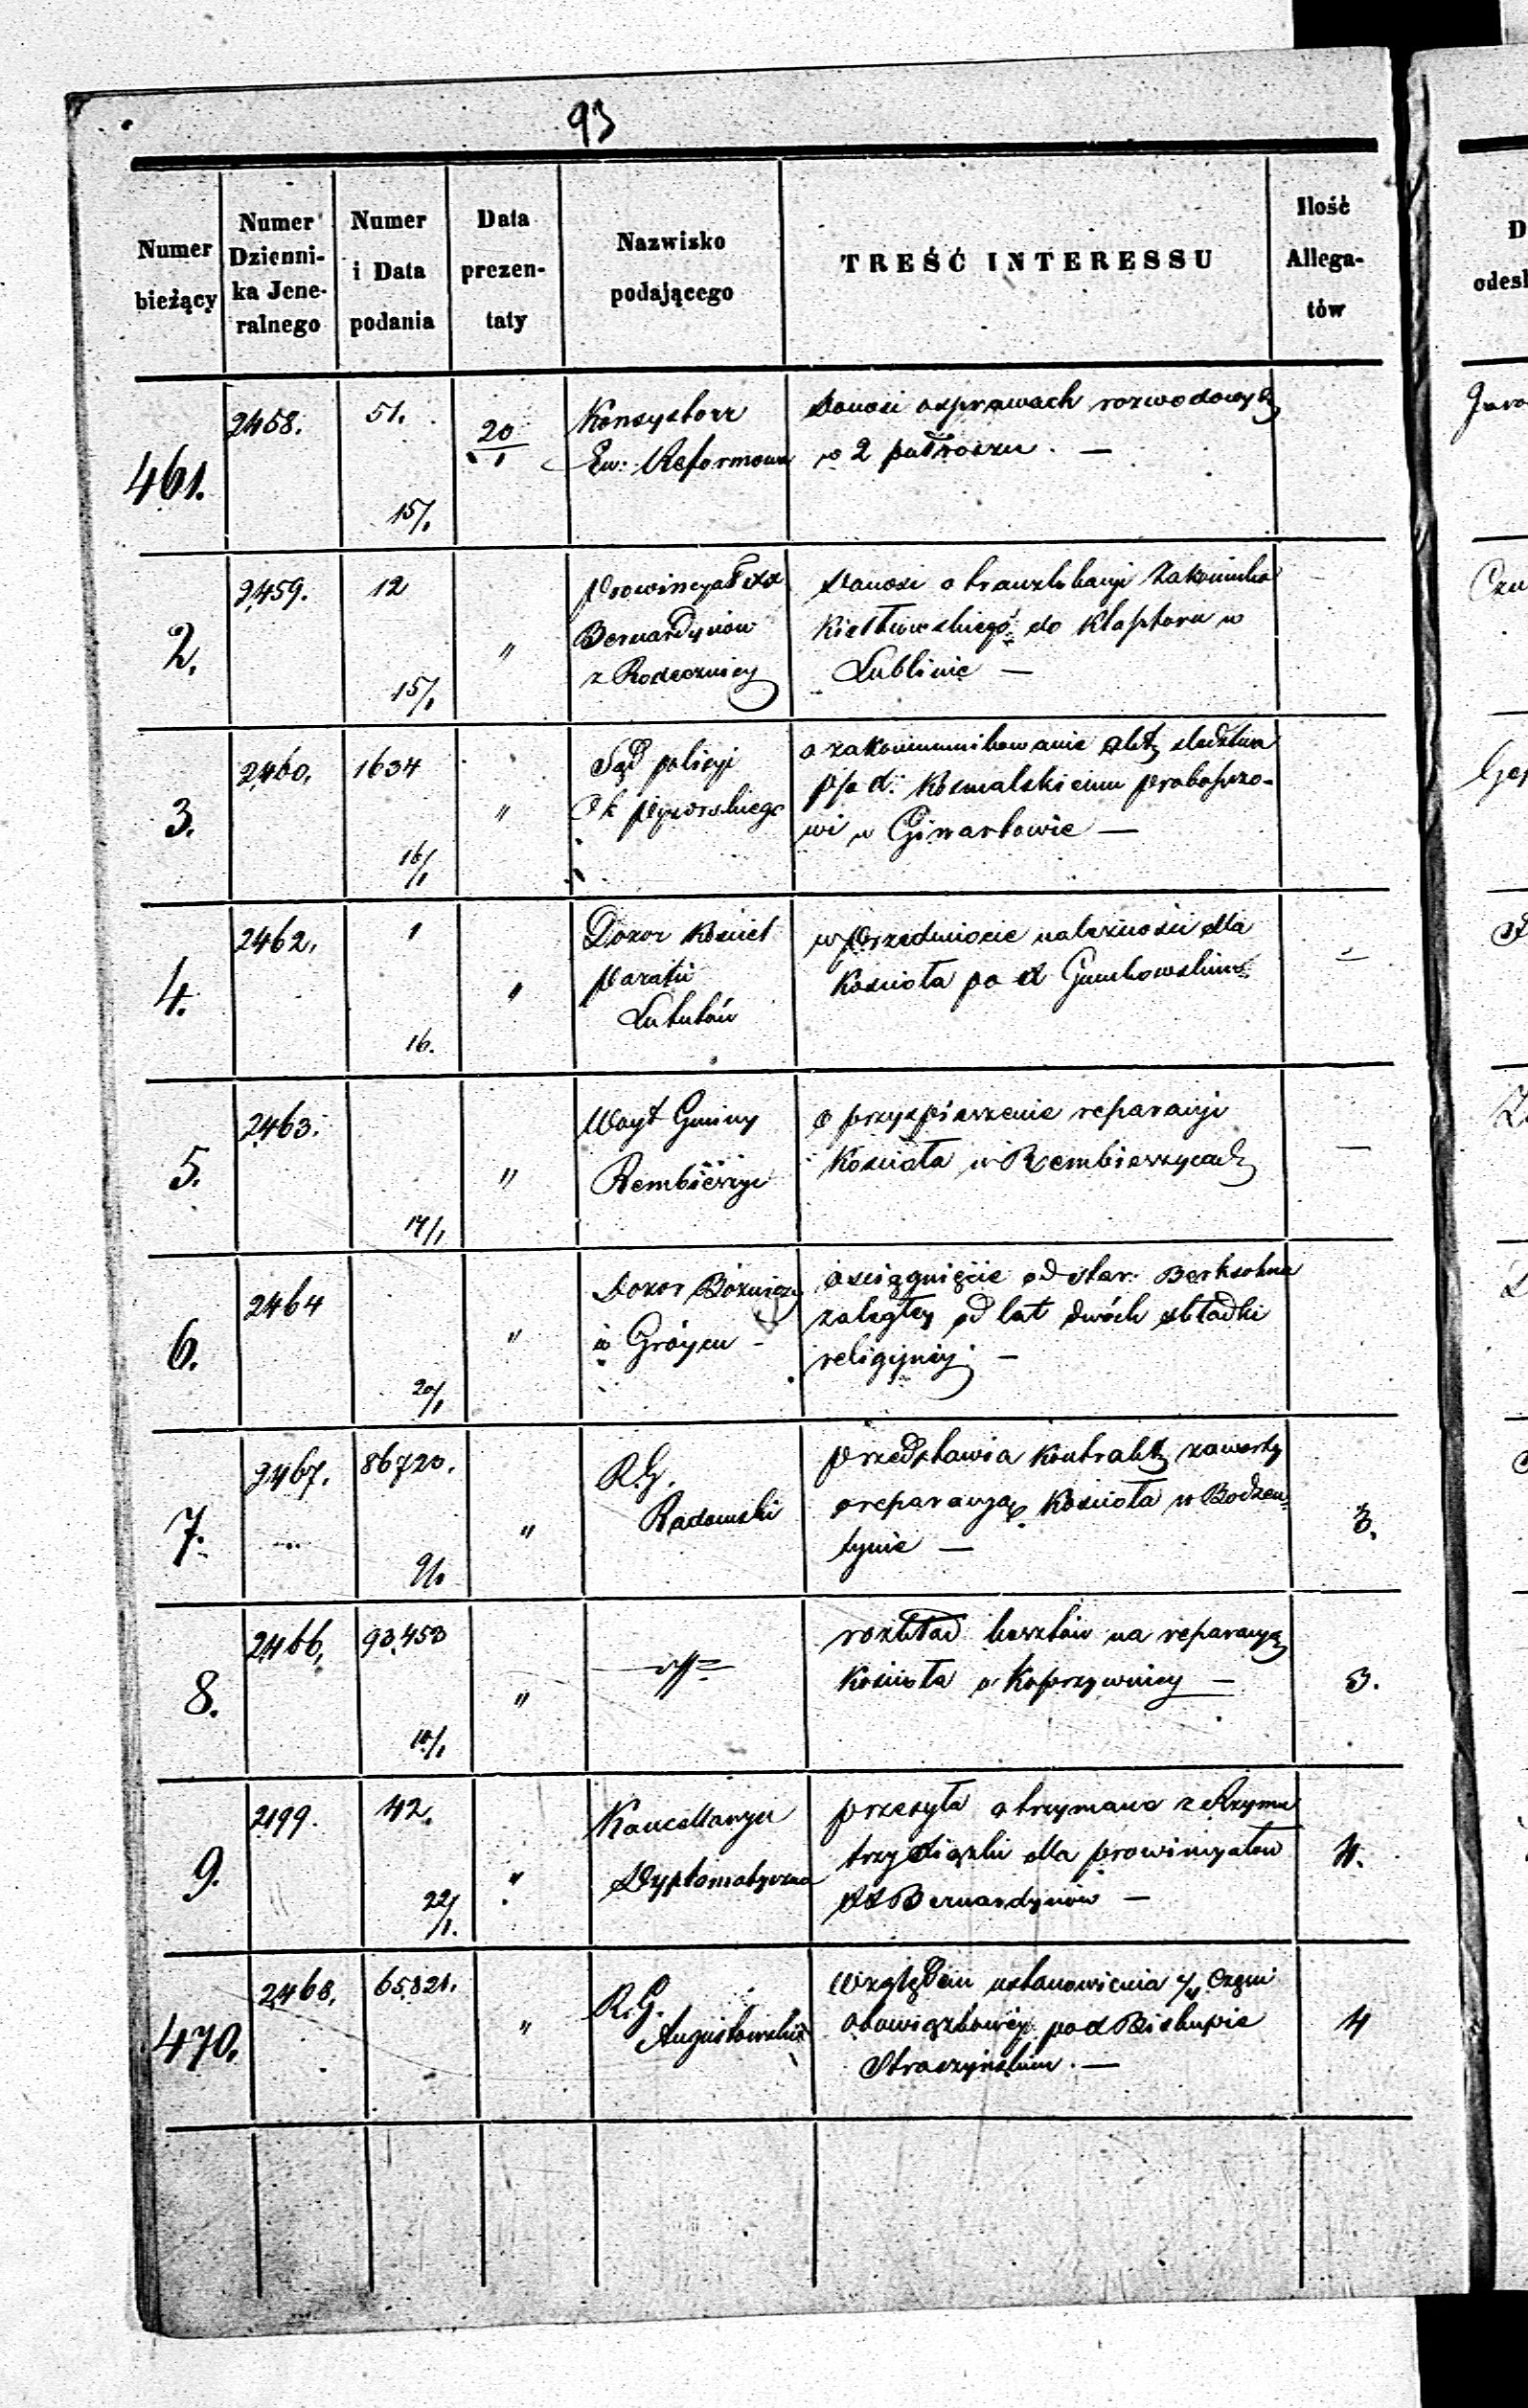 93
Numer
bieżący
Numer
Dzienni-
ka Jene-
ralnego
Numer
i Data
podania
Data
prezen-
taty
Nazwisko
podającego
TREŚĆ INTERESSU
Ilość
Allega-
tów
461.
2458.
51.
15/1
20/1
Konsystorz
Ew: Reformow
Donosi o sprawach rozwodowych
w 2 półroczu. —
2.
2459.
12
15/1
"
Prowincyał XX
Bernardynów
z Radecznicy
Donosi o translokacyi Zakonnika
Kiełtowskiego do Klasztoru w
Lublinie —
3.
2460.
1634
16/1
"
Sąd policyi
o zakommunikowanie akt śledztwa
p/o X. Kosmalskiemu probosczo-
wi w —
4.
2462.
1
16.
"
Dozor Kościel
Parafii
Lututów
w Przedmiocie należności dla
Kościoła po X
—
5.
2463.
17/1
"
Woyt Gminy
Rembieszyce
o przyspieszenie reparacyi
Kościoła w Rembieszycach
—
6.
2464
20/1
"
Dozor Bóżniczy
w Grójcu -
o ściągnięcie od star: Berksohna
zaległey od lat dwóch składki
religijnéj. —
7.
2467.
86720.
"
R.G.
Radomski
Przedstawia Kontrakt zawarty
o reparacyą Kościoła w Bodzen-
tynie —
3.
8.
2466.
93,453
10/1
"
rozkład kosztów na reparacyą
Kościoła w Koprzywnicy —
3.
9.
2199.
42.
22/1.
"
Kancellarya
Dyplomatyczna
przesyła otrzymane z Rzymu
trzy książki dla prowincyałów
XX Bernardynów —
4.
470.
2468.
65,821.
"
R.G.
Augustowski
Względem ustanowienia Części
obowiązkowéj po X Biskupie
Straszyńskim. —
4
D
odesł